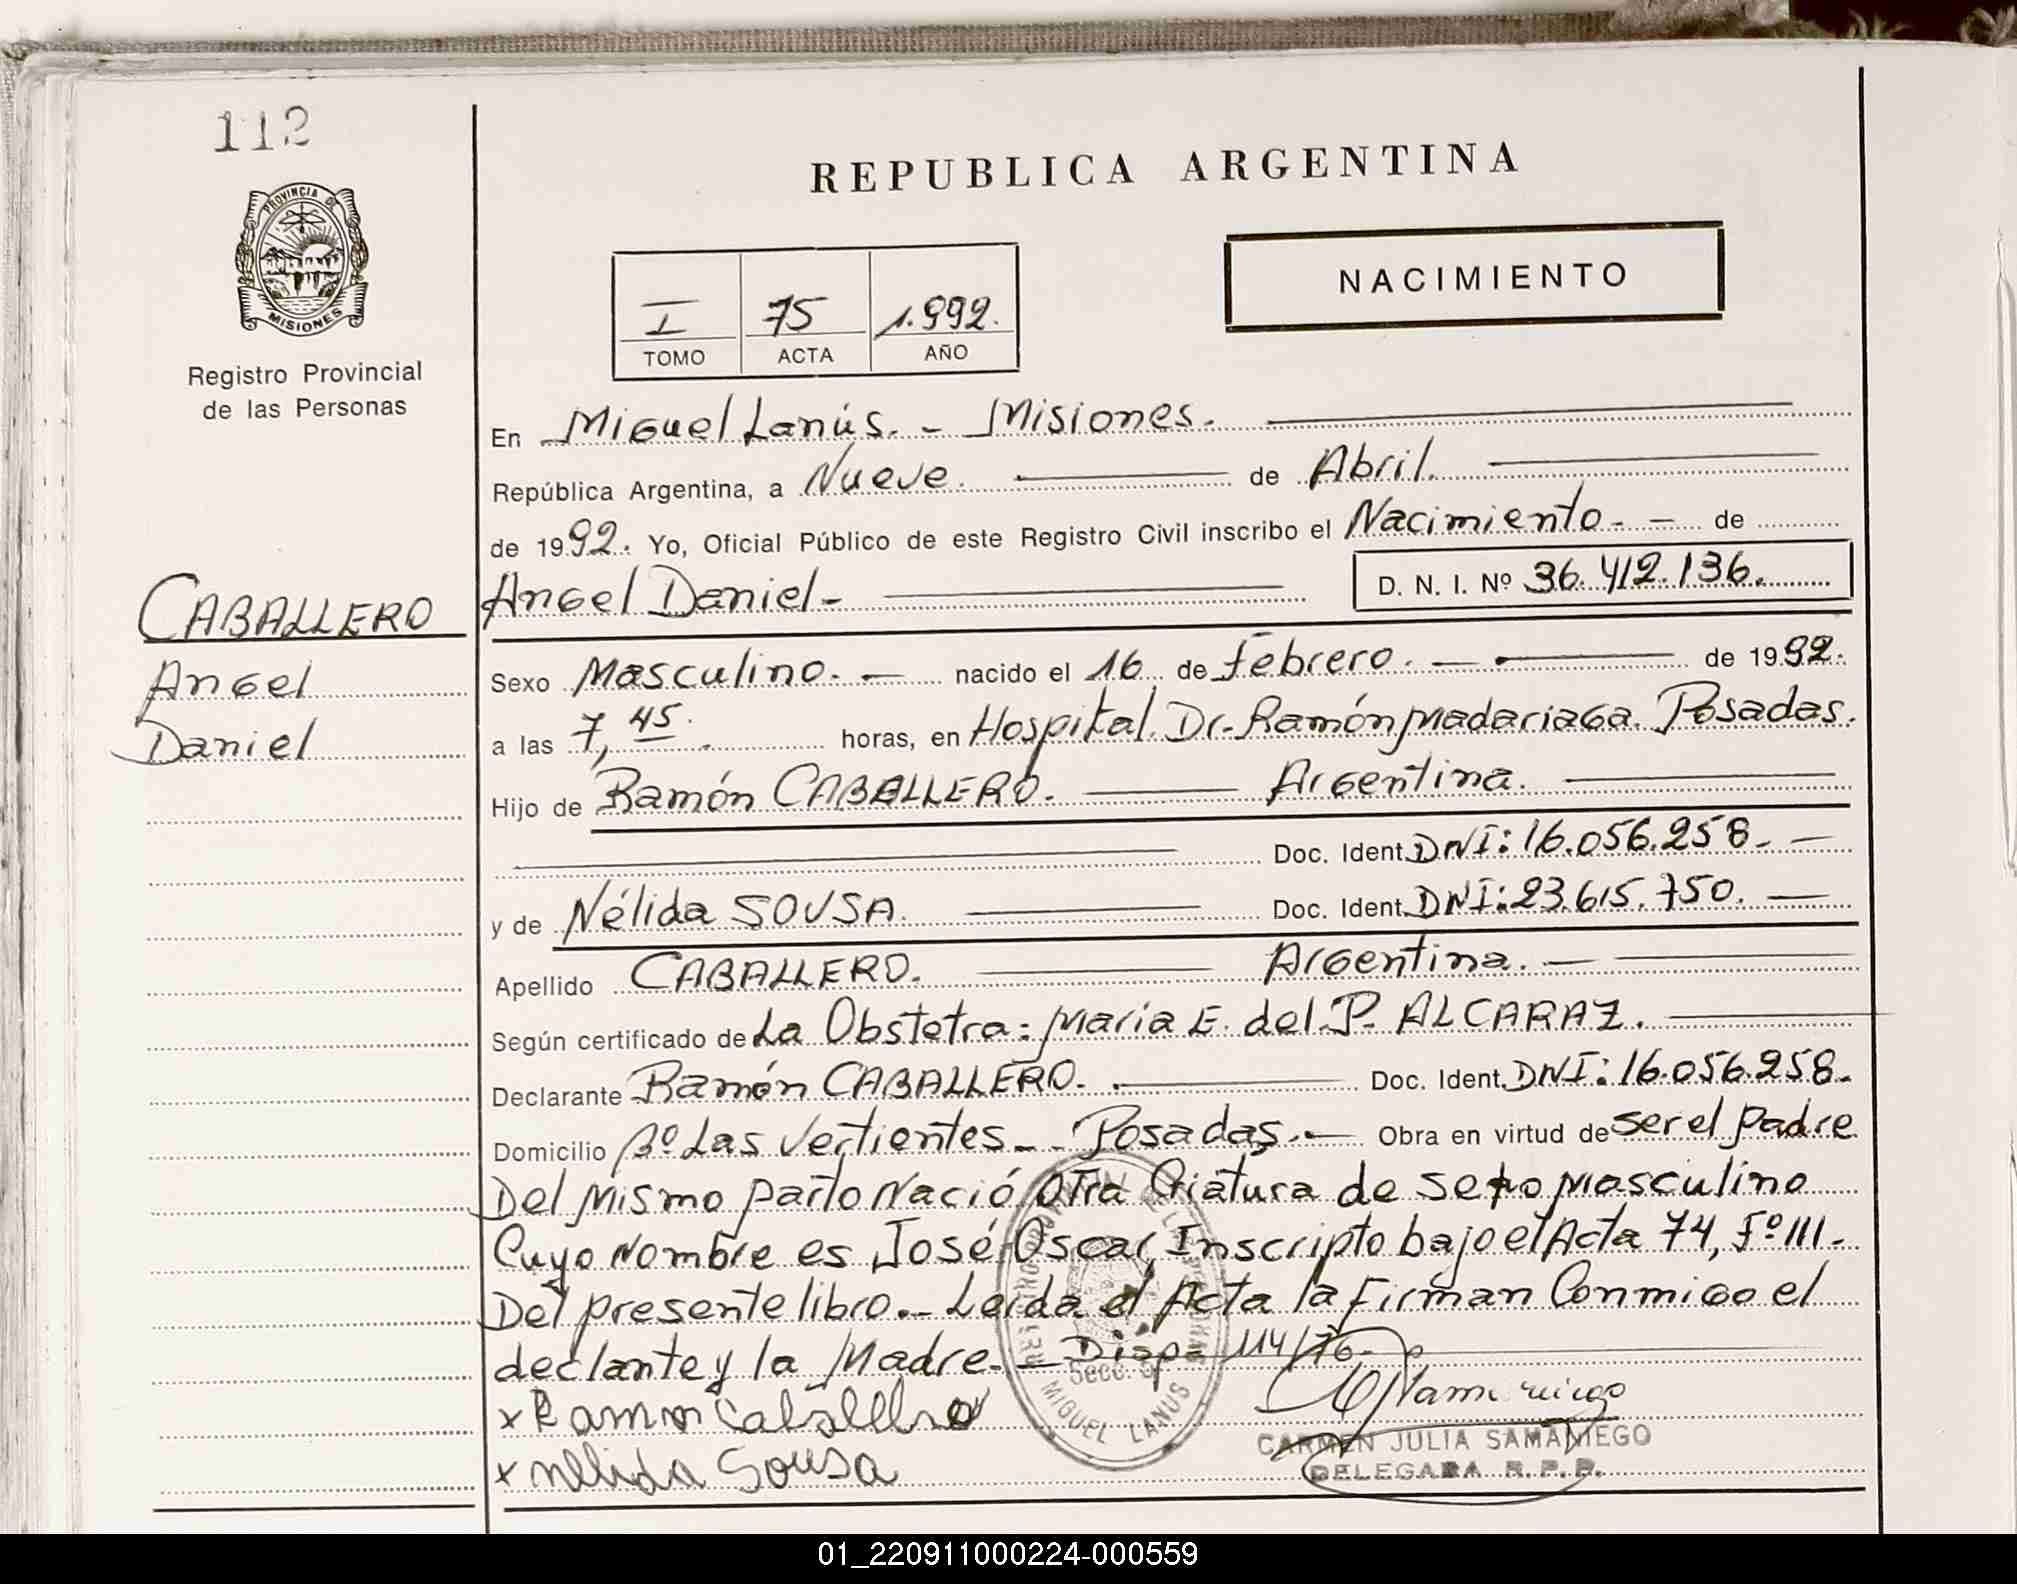 112
REPUBLICA ARGENTINA
PROVINCIA DE
MISIONES
Registro Provincial
de las Personas
NACIMIENTO
I 75 1.992.
TOMO ACTA AÑO
En Miguel Lanús. - Misiones.
República Argentina, a Nueve. de Abril.
de 1992. Yo, Oficial Público de este Registro Civil inscribo el Nacimiento - - de
CABALLERO
Angel
Daniel
Angel Daniel - D. N. I. Nº 36.412.136.
Sexo Masculino. - nacido el 16 de Febrero. - de 1992.
a las 7,45. horas, en Hospital Dr. Ramón Madariaga. Posadas.
Hijo de Ramón CABALLERO. Argentina.
Doc. Ident. DNI: 16.056.258. -
y de Nélida SOUSA. Doc. Ident. DNI: 23.615.750. -
Apellido CABALLERO. Argentina. -
Según certificado de La Obstetra: Maria E. del P. ALCARAZ.
Declarante Ramón CABALLERO. Doc. Ident. DNI: 16.056.258.
Domicilio Bº Las Vertientes - Posadas. - Obra en virtud de ser el padre
Del Mismo parto Nació Otra Criatura de sexo Masculino
Cuyo Nombre es José Oscar, Inscripto bajo el Acta 74, Fº 111.
Del presente libro. - Leida el Acta la Firman Conmigo el
declante y la Madre. - Dispo 114/76.
x Ramon Caballero
x nelida Sousa
Secc. 9ª
MIGUEL LANUS
CARMEN JULIA SAMANIEGO
DELEGADA R.P.P.
01_220911000224-000559